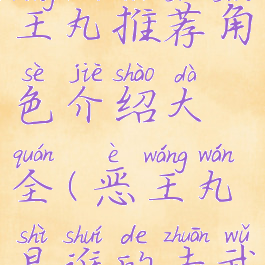 王丸推荐角
sè jiè shào dà
色介绍大
quán è wáng wán
全(恶王丸
shì shuí de zhuān wǔ
是谁的专武